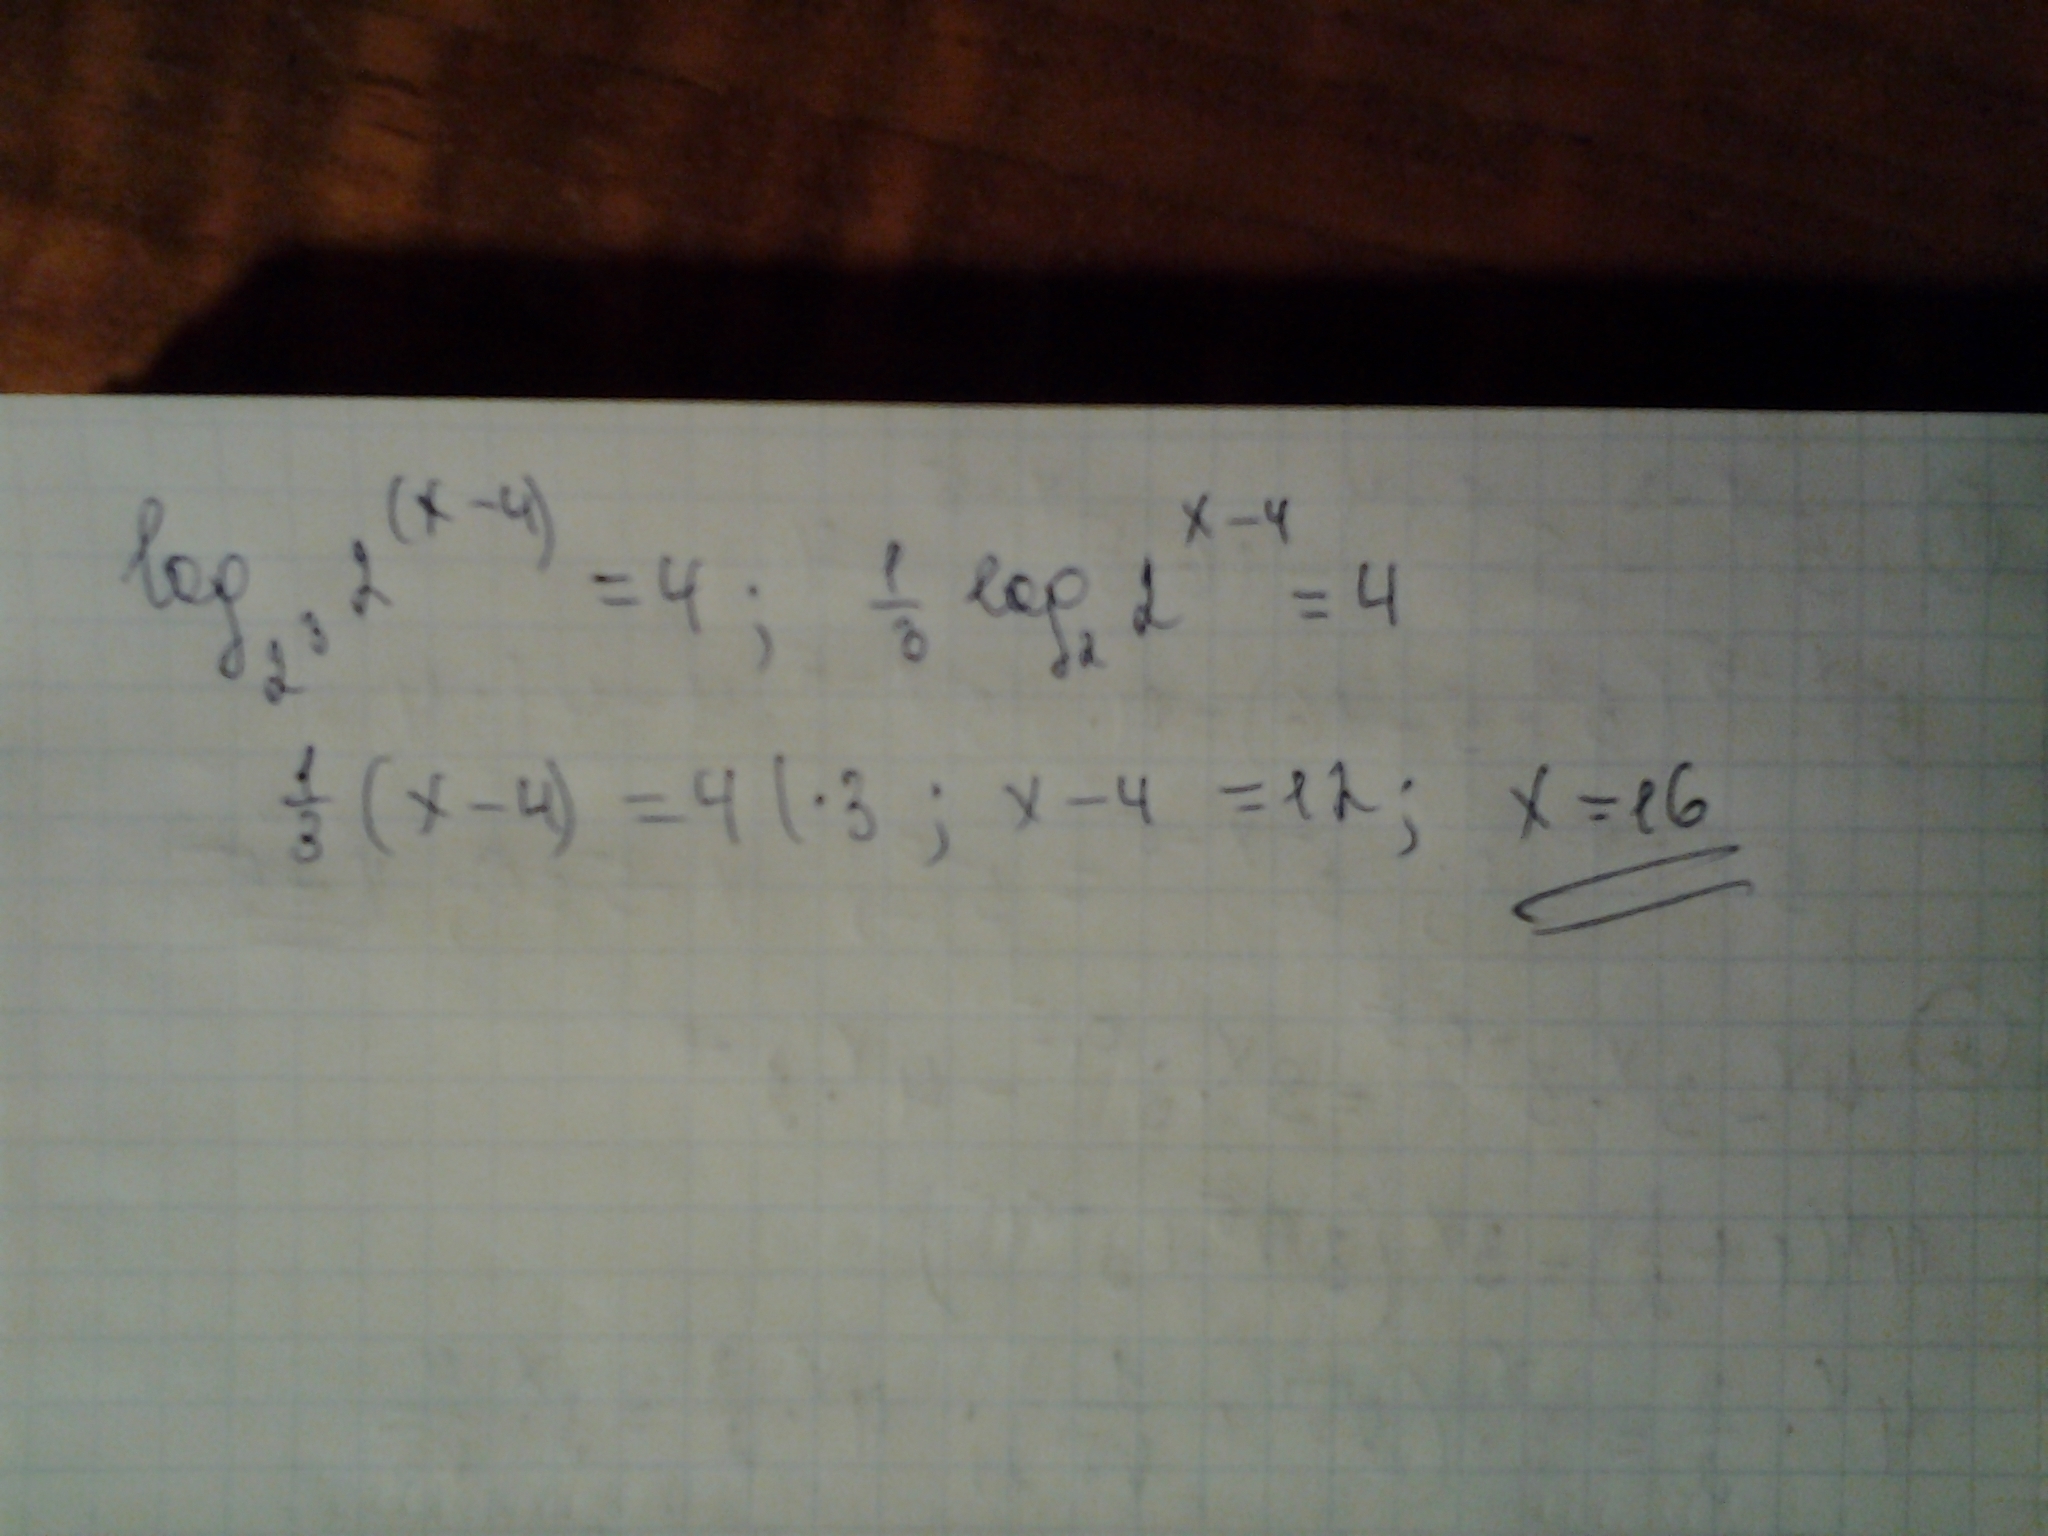 log_{2^3} 2^{(x-4)} = 4 ; \frac{1}{3} log_2 2^{x-4} = 4
\frac{1}{3} (x-4) = 4 | \cdot 3 ; x-4 = 12; x = 16